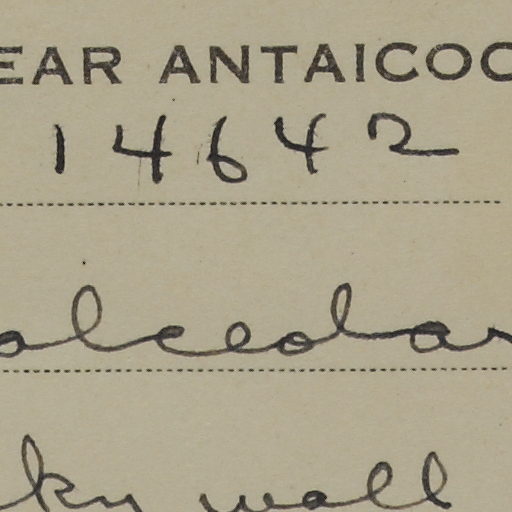 EAR ANTAICOC
14642
alceolar
ky wall